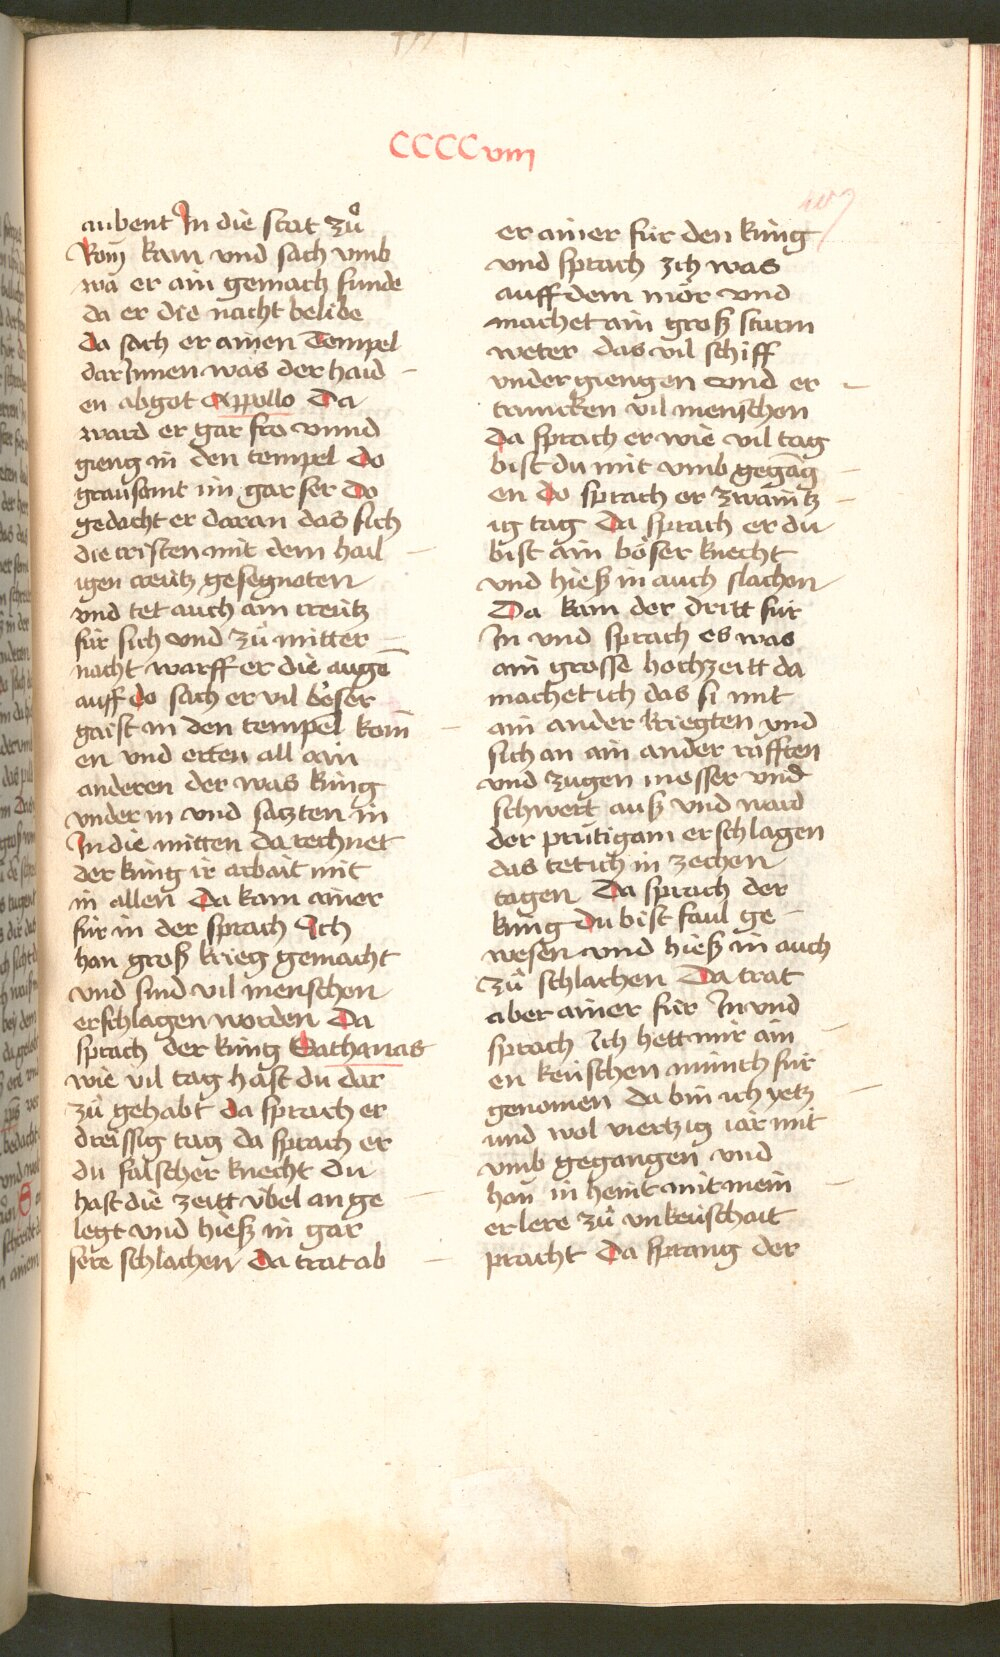 CCCCviii
aubent In die stat zuͦ
Rom̄ kam vnd sach vmb
wa er ain gemach funde
da er die nacht belibe
Da sach er ainen Tempel
dar Jnnen was der haid
en abgot Appollo Da
ward er gar fro vnnd
gieng in den tempel Do
grausamt im gar ser Do
gedacht er daran das sich
die cristen mit dem hail
igen creütz gesegnoten
vnd tet auch ain creütz
für sich vnd zuͦ mitter
nacht warff er die augē
auff do sach er vil böser
gaist in den tempel kom̄
en vnd erten all ain
anderen der was küng
vnder in vnd sazten in
In die mitten da rechnet
der küng ir arbait mit
in allen Da kam ainer
für in der sprach Ich
han groß krieg gemacht
vnd sind vil menschen
erschlagen worden Da
sprach der küng Sathanas
wie vil tag hast du dar
zuͦ gehabt da sprach er
dreissig tag da sprach er
du falscher knecht du
hast die zeitt übel an ge
legt vnd hieß in gar
sere schlachen Da trat ab
er ainer für den küng
vnd sprach ich was
auff dem mör vnd
machet ain groß sturm
weter das vil schiff
vnder giengen vnd er
truncken vil menschen
Da sprach er wie vil tag
bist du mit vmb gegāg
en Do sprach er zwaintz
ig tag Da sprach er du
bist ain böser knecht
vnd hieß in auch slachen
Da kam der dritt für
In vnd sprach es was
ain grosse hochzeitt da
machet ich das si mit
ain ander kriegten vnd
sich an ain ander rafften
vnd zugen messer vnd
schwert auß vnd ward
der prütigam erschlagen
das tet ich in zechen
tagen Da sprach der
küng Du bist faul ge
wesen vnd hieß in auch
zuͦ schlachen Da trat
aber ainer für In vnd
sprach Ich hett mir ain
en keüschen münch für
genomen da bin ich yetz
vnd wol viertzig iar mit
vmb gegangen vnd
han in heint mit mein
er lere zuͦ vnkeüschait
pracht Da sprang der